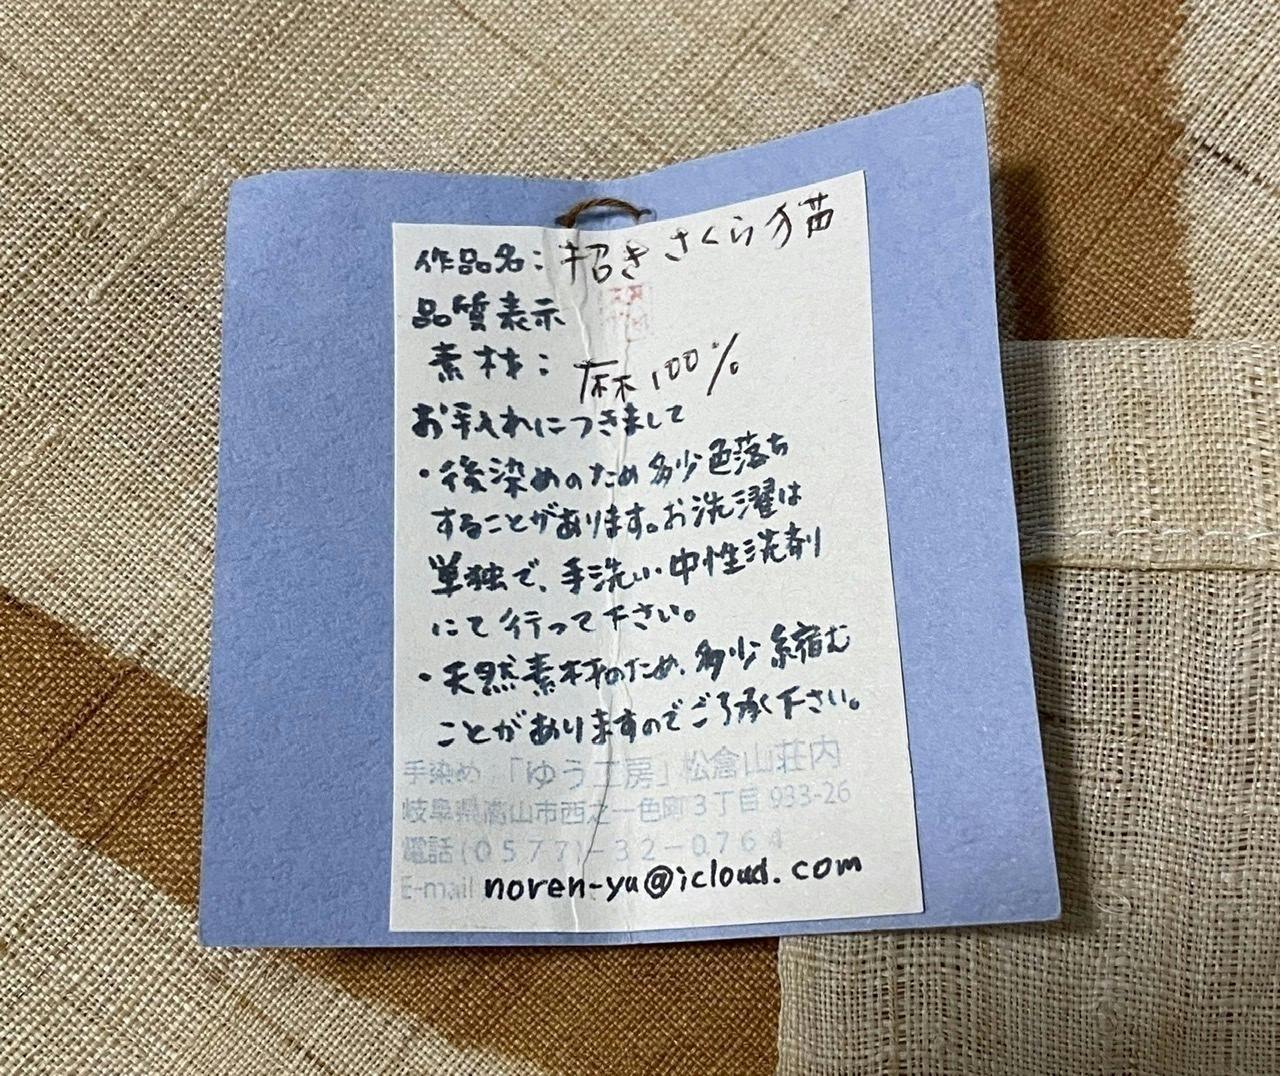 作品名：招きさくら猫
品質表示
素材：麻100%
お手入れにつきまして
・後染めのため多少色落ち
することがあります。お洗濯は
単独で、手洗い・中性洗剤
にて行って下さい。
・天然素材のため、多少縮む
ことがありますのでご了承下さい。
手染め「ゆう工房」松倉山荘内
岐阜県高山市西之一色町3丁目933-26
電話(0577)-32-0764
E-mail noren-yu@icloud.com